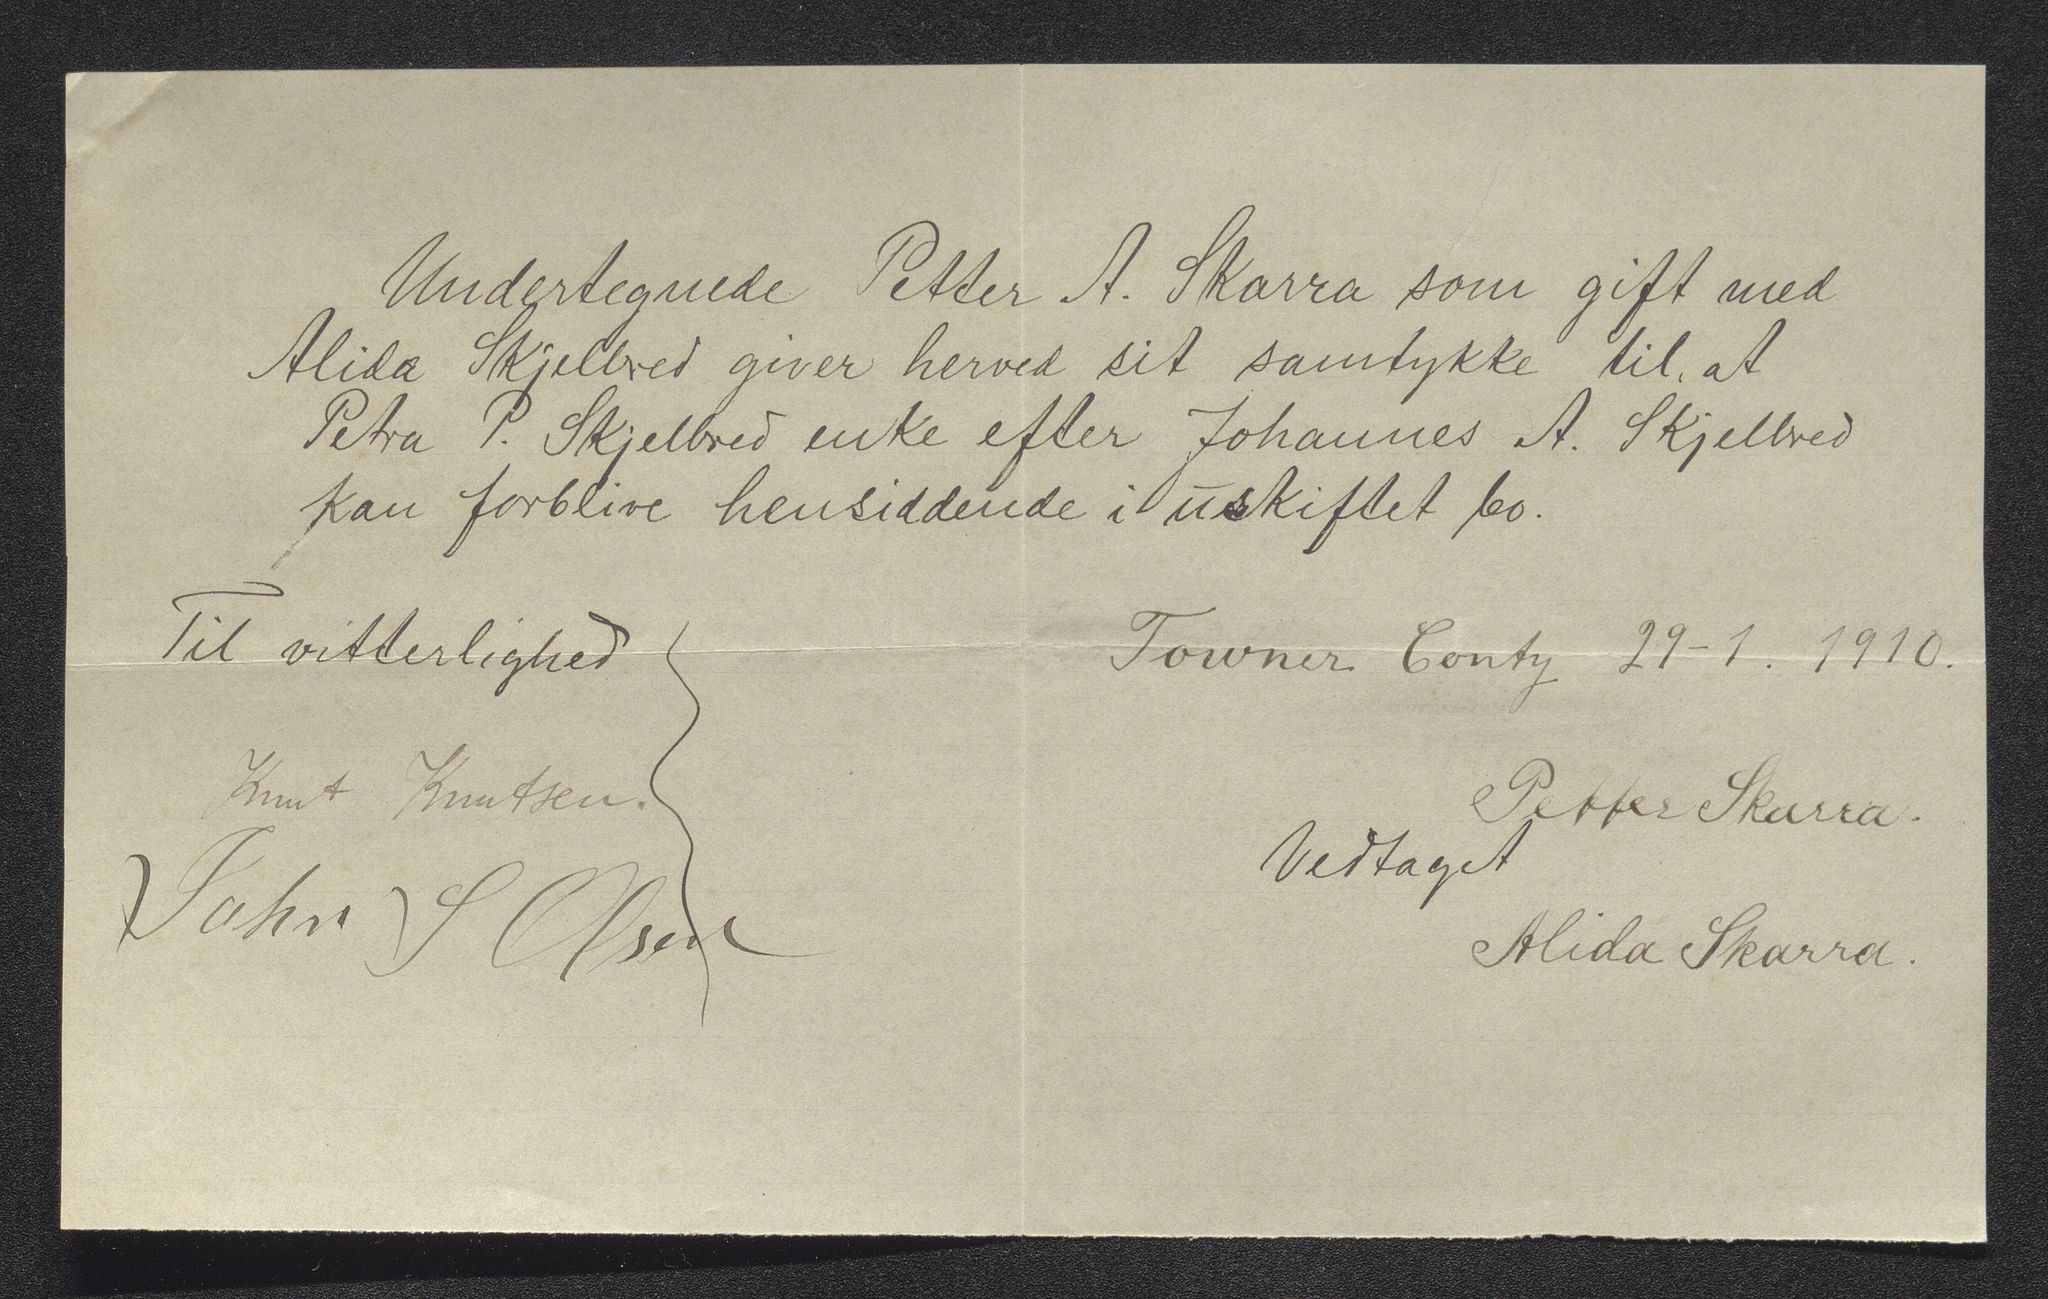 Undertegnede Petter A. Skarra som gift med
Alida Skjelbred giver herved sit samtykke til, at
Petra P. Skjelbred enke efter Johannes A. Skjelbred
kan forblive hensiddende i uskiftet bo.
Til vitterlighed
Towner Conty 29-1. 1910.
Knut Knutsen.
Petter Skarra.
Vedtaget
John S Olsen
Alida Skarra.